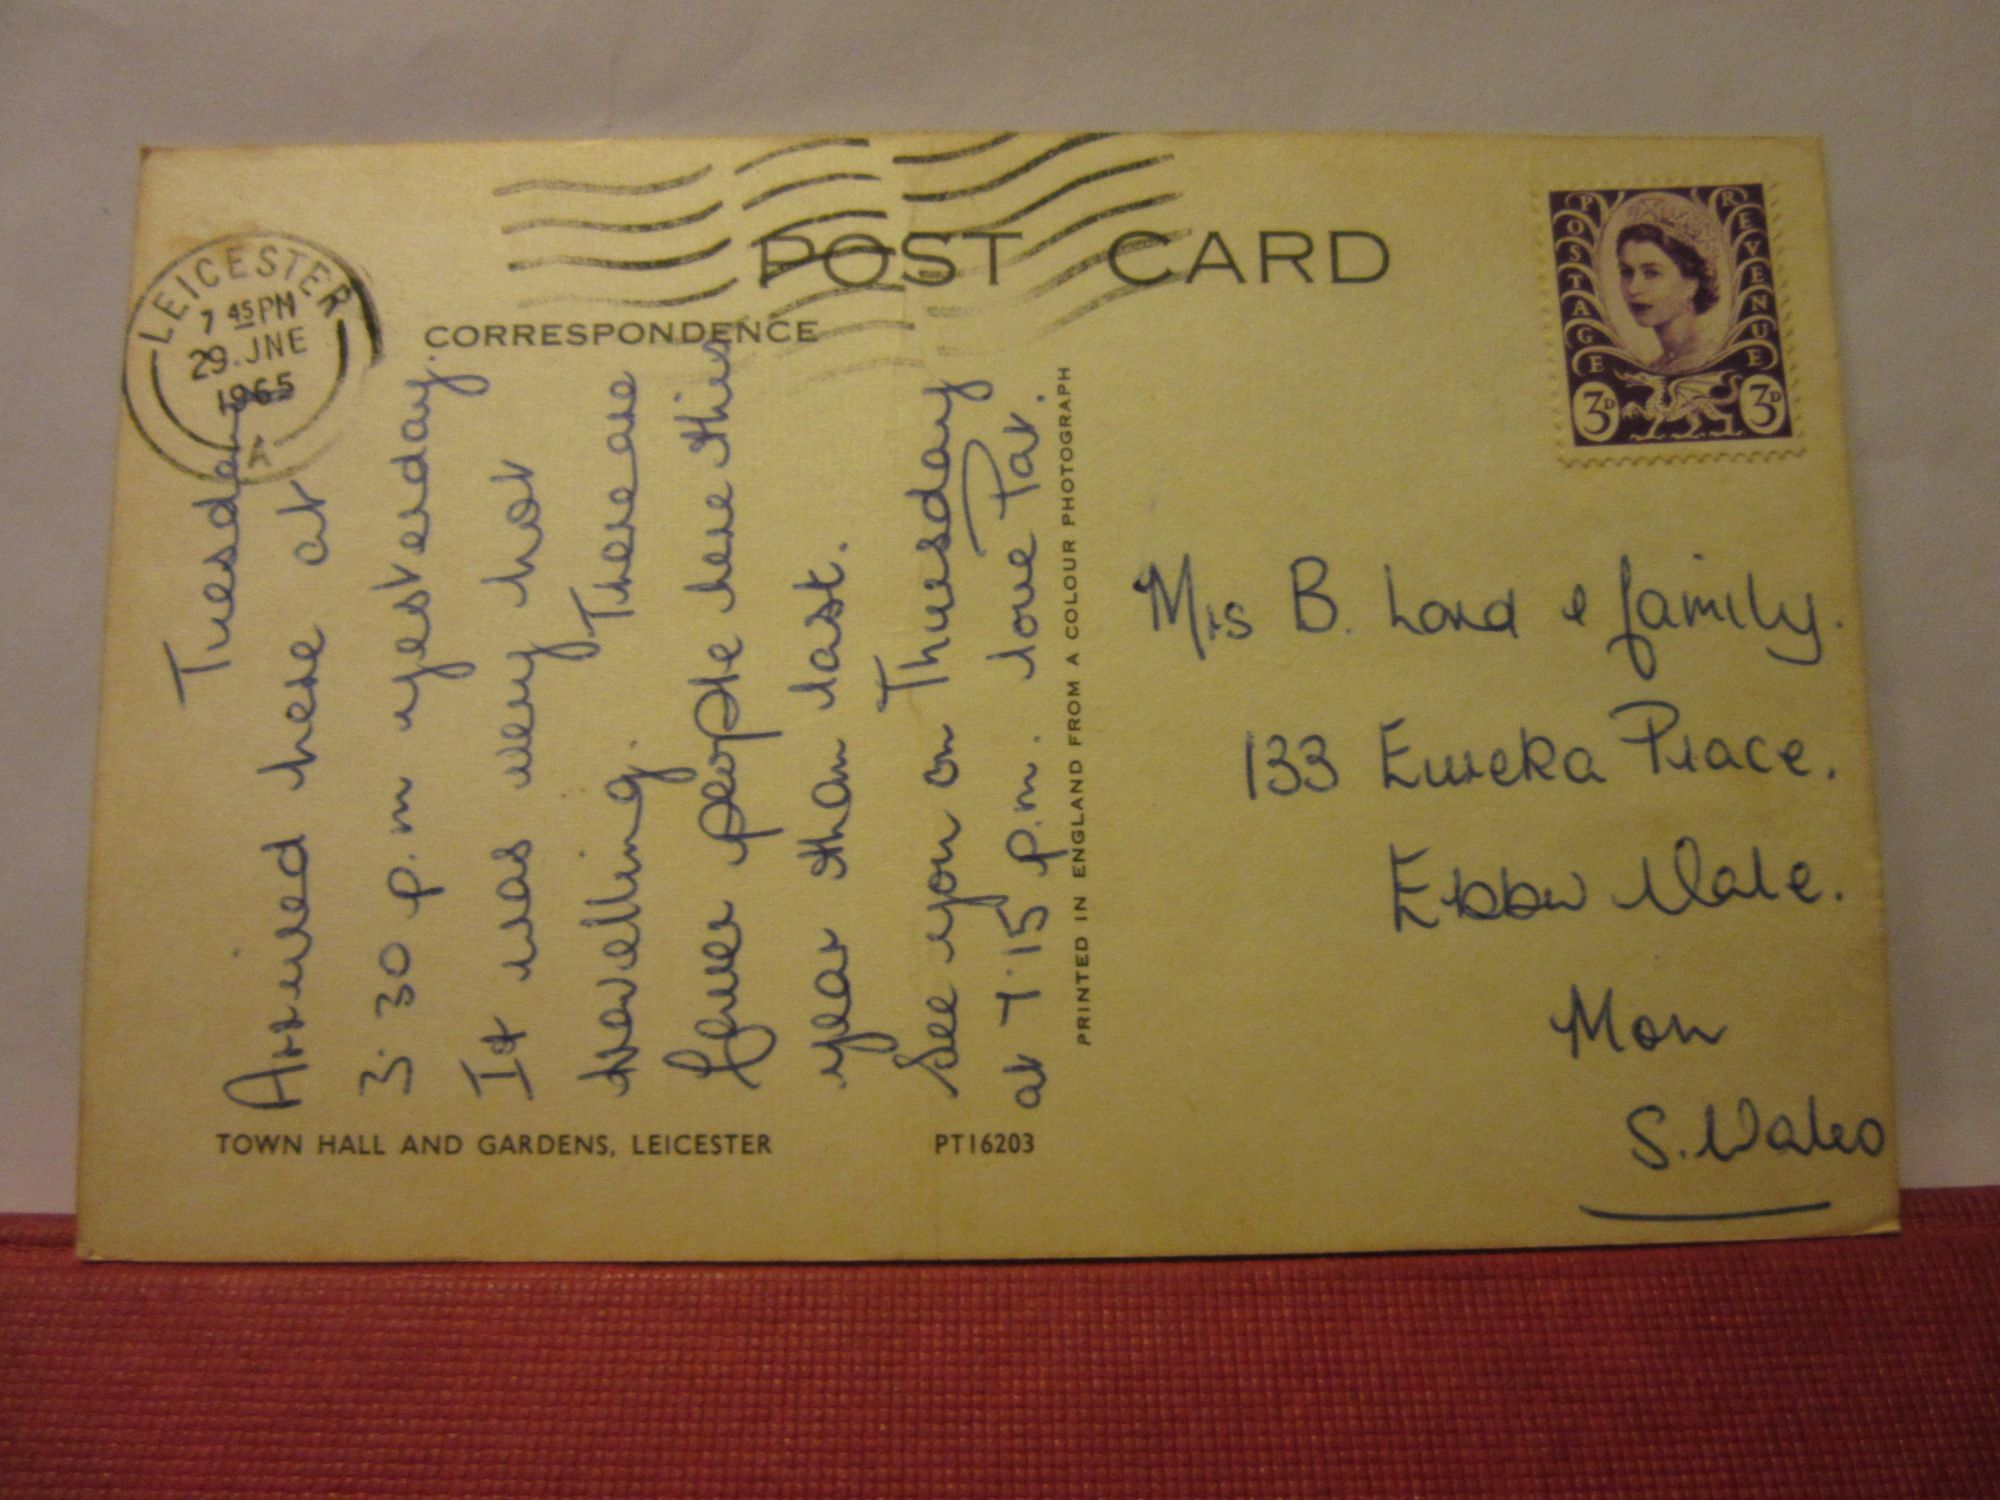 POST CARD
CORRESPONDENCE
LEICESTER
7 45 PM
29. JNE
1965
A
POSTAGE REVENUE
3D 3D
Tuesday
Arrived here at
3.30 p.m yesterday.
It was very hot
travelling. There are
fewer people here this
year than last.
See you on Thursday
at 7.15 p.m. love Pat.
PRINTED IN ENGLAND FROM A COLOUR PHOTOGRAPH
Mrs B. Lord & family.
133 Eureka Place.
Ebbw Vale.
Mon
S. Wales
TOWN HALL AND GARDENS, LEICESTER
PT16203